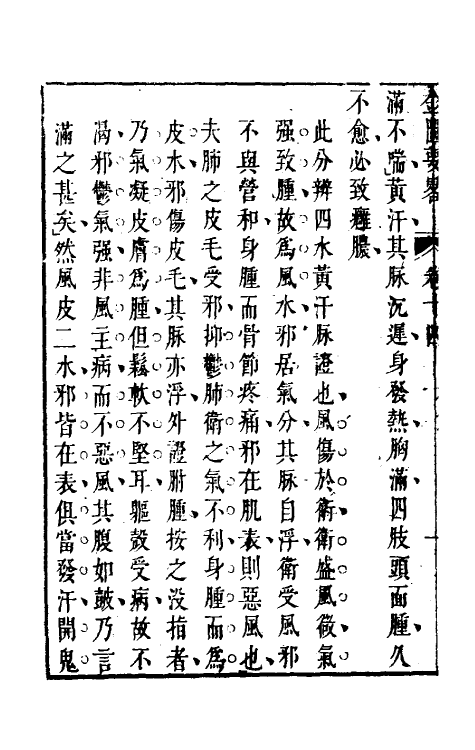 滿不喘黃汗其脉沉遲身發熱胸滿四肢頭面腫久
不愈必致癰膿
此分辨四水黃汗脉證也風傷於衛衛盛風微氣
强致腫故爲風水邪居氣分其脉自浮衛受風邪
不與營和身腫而骨節疼痛邪在肌表則惡風也
夫肺之皮毛受邪抑鬱肺衛之氣不利身腫而爲
皮水邪傷皮毛其脉亦浮外證胕腫按之没指者
乃氣凝皮膚爲腫但鬆軟不堅耳軀殼受病故不
渴邪鬱氣强非風主病而不惡風其腹如皷乃言
滿之甚矣然風皮二水邪皆在表俱當發汗開鬼